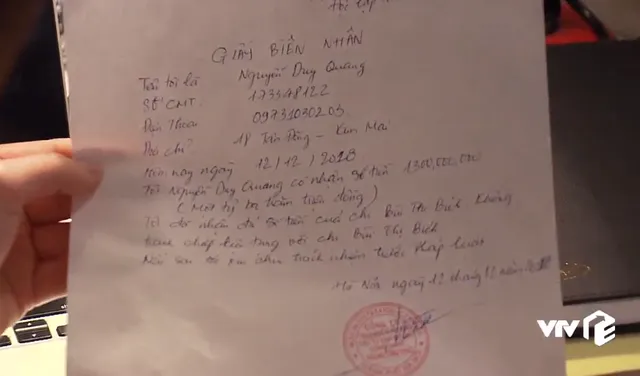 GIẤY BIÊN NHẬN
Tên tôi là Nguyễn Duy Quang
Số CMT. 173548122
Điện Thoại 09731030203
Địa chỉ: 18 Tân - Kim Mai
Hôm nay ngày 12/12/2018
Tôi Nguyễn Duy Quang có nhận số tiền 1300,000,000
(Một tỷ ba trăm triệu đồng)
Tôi đã nhận đủ số tiền của chị Bùi Thị Bích Không
tranh chấp với chị Bùi Thị Bích
sai tôi xin chịu trách nhiệm trước Pháp luật
Hà Nội ngày 12 tháng 12 năm
VTV